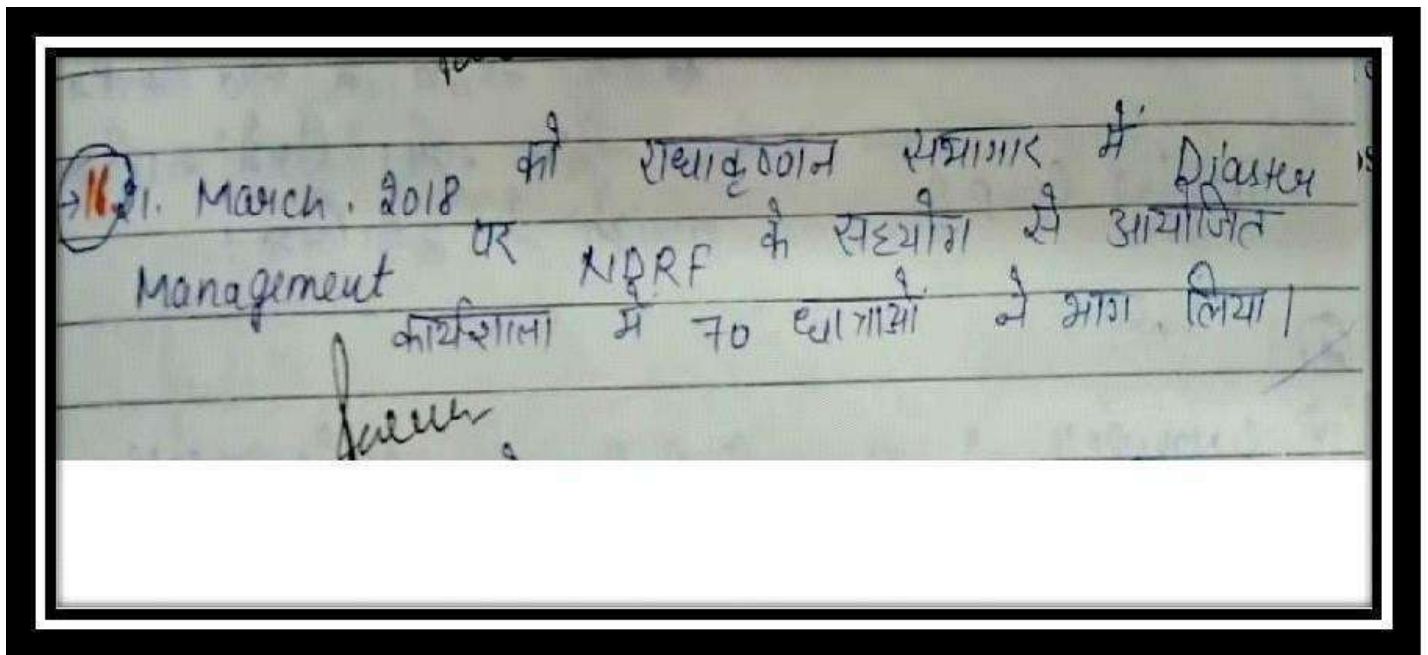 →16. 21. March. 2018 को राधाकृष्णन सभागार में Diaster
Management पर NDRF के सहयोग से आयोजित
कार्यशाला में 70 छात्राओं ने भाग लिया।